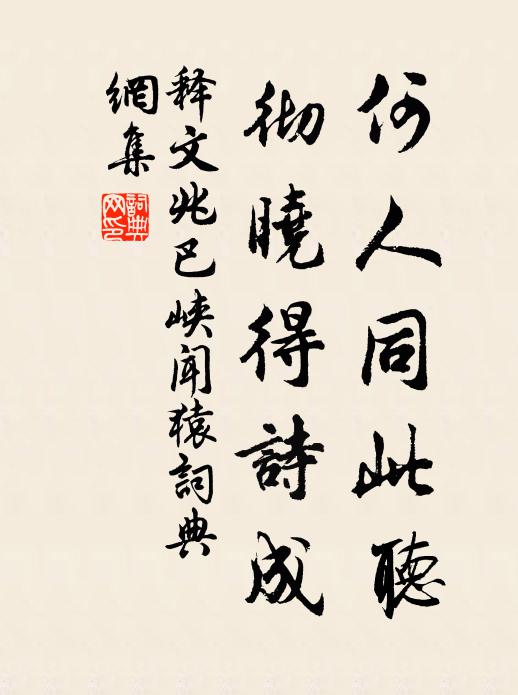 何人同此聽
彻曉得詩成
释文兆巴峽闻猿詞典
網集
詞典
网印